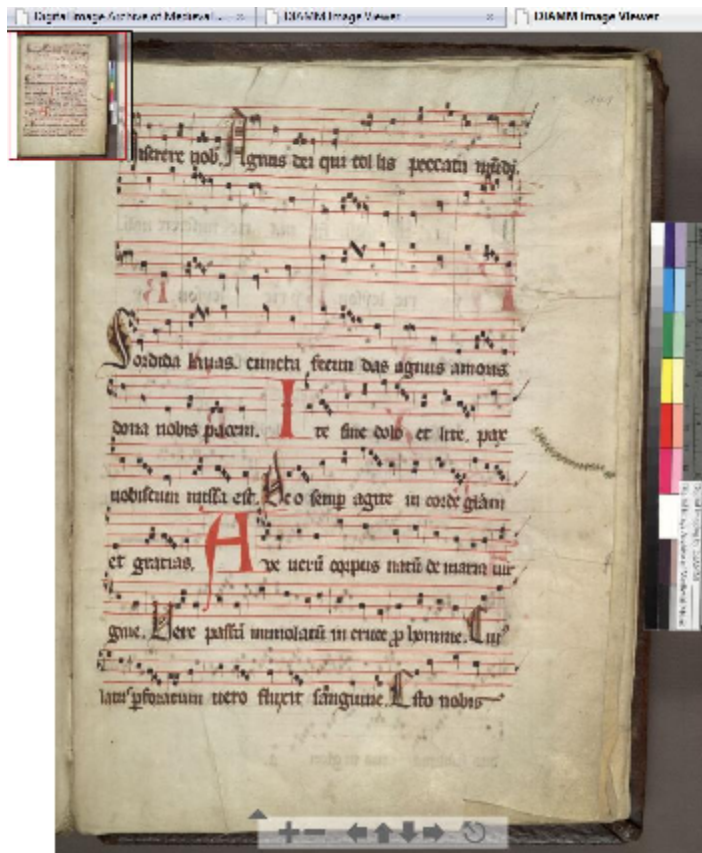 Digital Image Archive of Medieval ...
DIAMM Image Viewer
DIAMM Image Viewer
nob. Agnus dei qui tol lis peccata mūdi.
Sordida lauas. cuncta fecun das agnus amoris
dona nobis pacem. I te sine dolo et lite. pax
uobiscum missa est. De o semp agite in corde gl̄am
et gratias. A ve uerū corpus natū de maria uir
gine. Vere passū immolatū in cruce p homine. Cui⁹
latus pforatum uero fluxit sanguine. Esto nobis